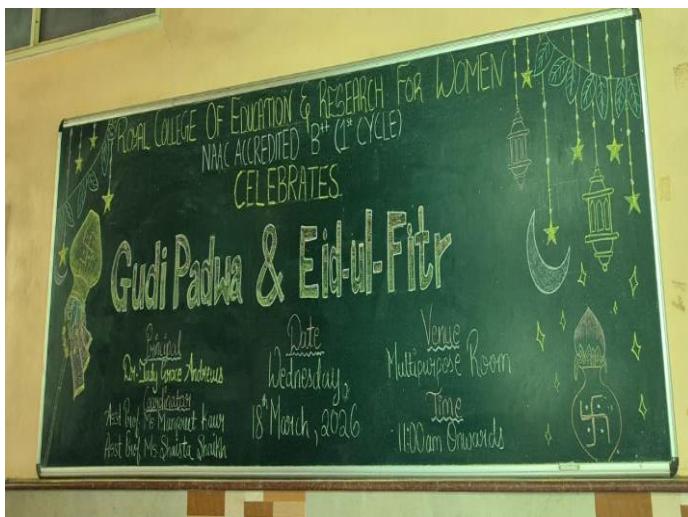 Royal College Of Education & Research For Women
NAAC Accredited B++ (1st Cycle)
CELEBRATES
Gudi Padwa & Eid-ul-Fitr
Principal
Dr. Judy Grace Andrews
Coordinator
Asst Prof. Ms Manpreet Kaur
Asst Prof. Ms. Shaista Shaikh
Date
Wednesday,
18th March, 2026
Venue
Multipurpose Room
Time
11:00am Onwards